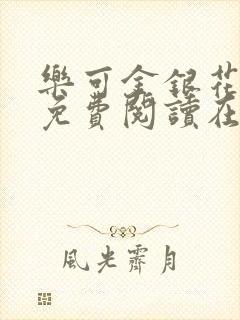 樂可金銀花
免費閱讀在
風光霽月